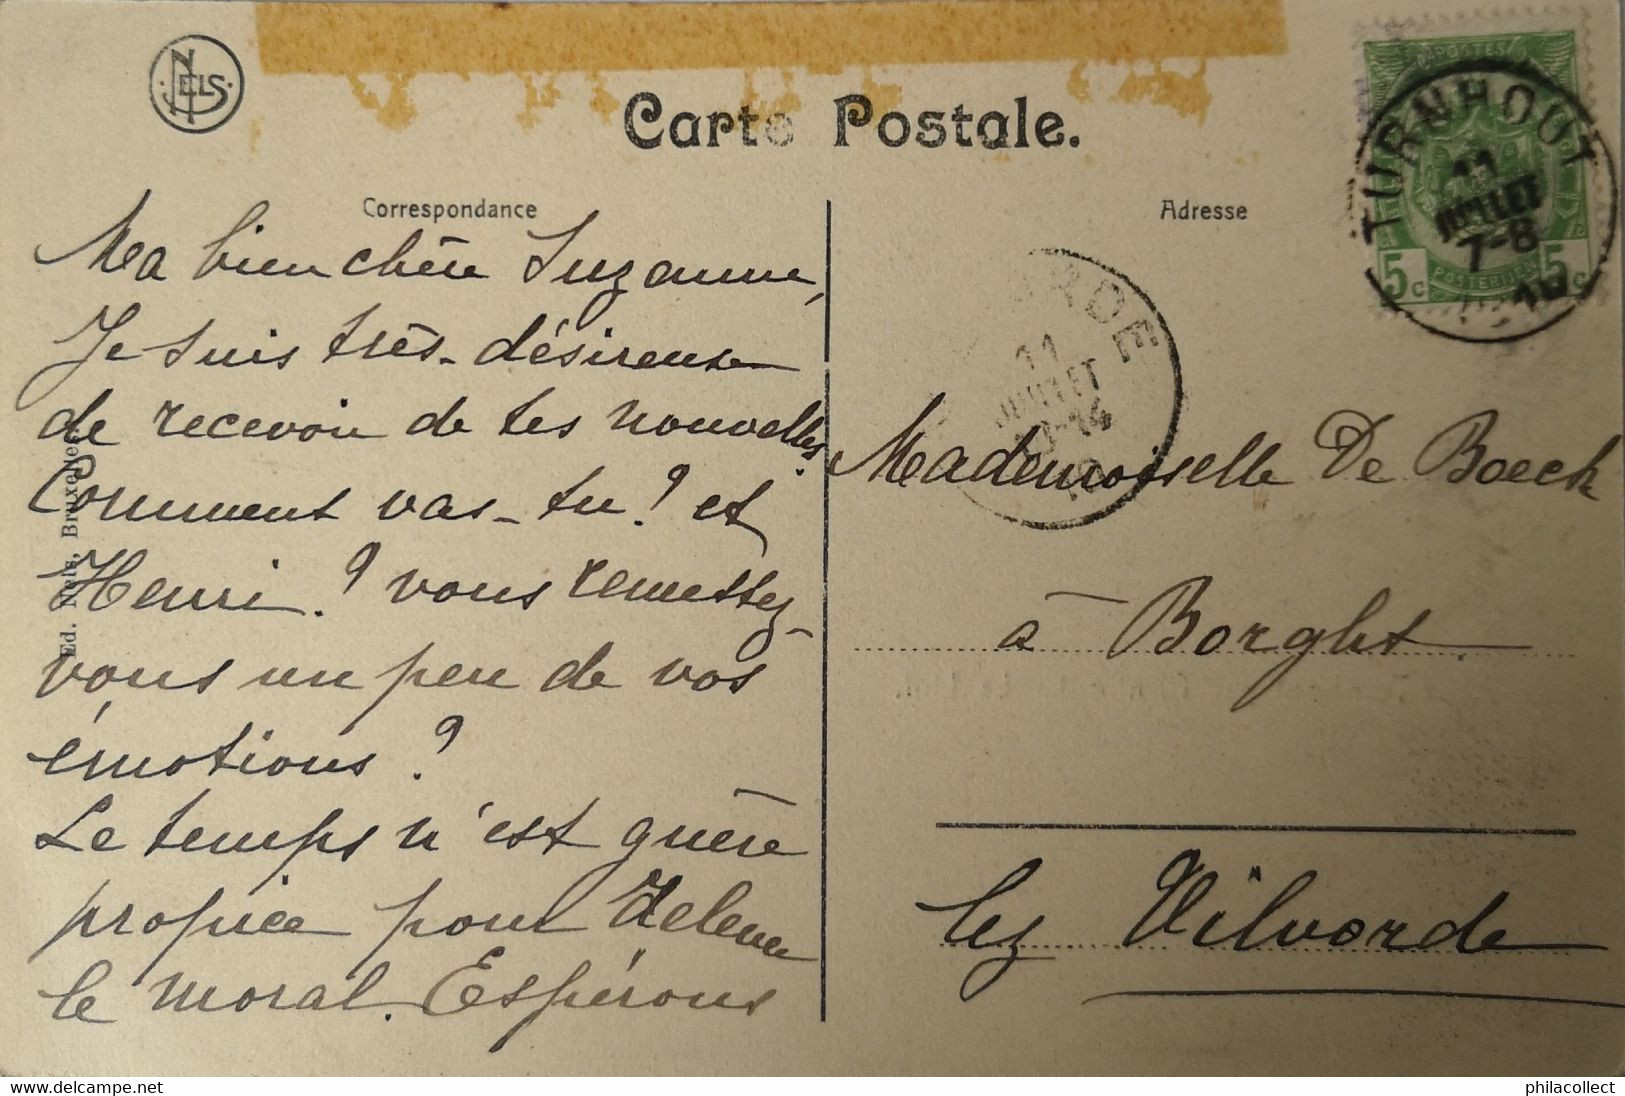 NELS
Carte Postale.
Correspondance
Adresse
TURNHOUT
11
JUILLET
7-8
10
5c 5c
11
JUILLET
Ma bien chère Suzanne,
Je suis très-désireuse
de recevoir de tes nouvelles.
Comment vas-tu? et
Henri? vous remettez-
vous un peu de vos
émotions?
Le temps n'est guère
propice pour relever
le moral. Espérons
Ed. Nels, Bruxelles
Mademoiselle De Boeck
à Borght.
lez Vilvorde
delcampe.net
philacollect